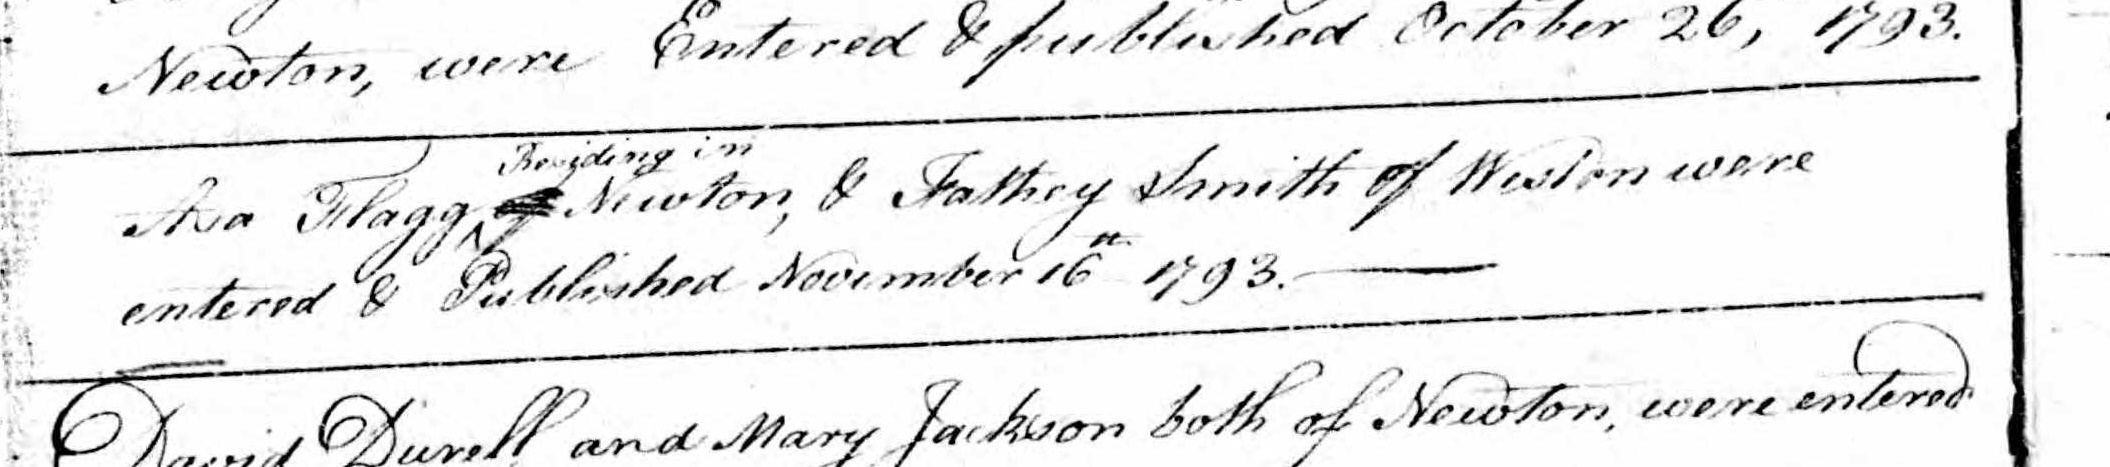 Newton, were Entered & published October 26, 1793.
Residing in
Asa Flagg ^ Newton, & Fathey Smith of Weston were
entered & Published November 16th 1793.
David Durell and Mary Jackson both of Newton, were entered